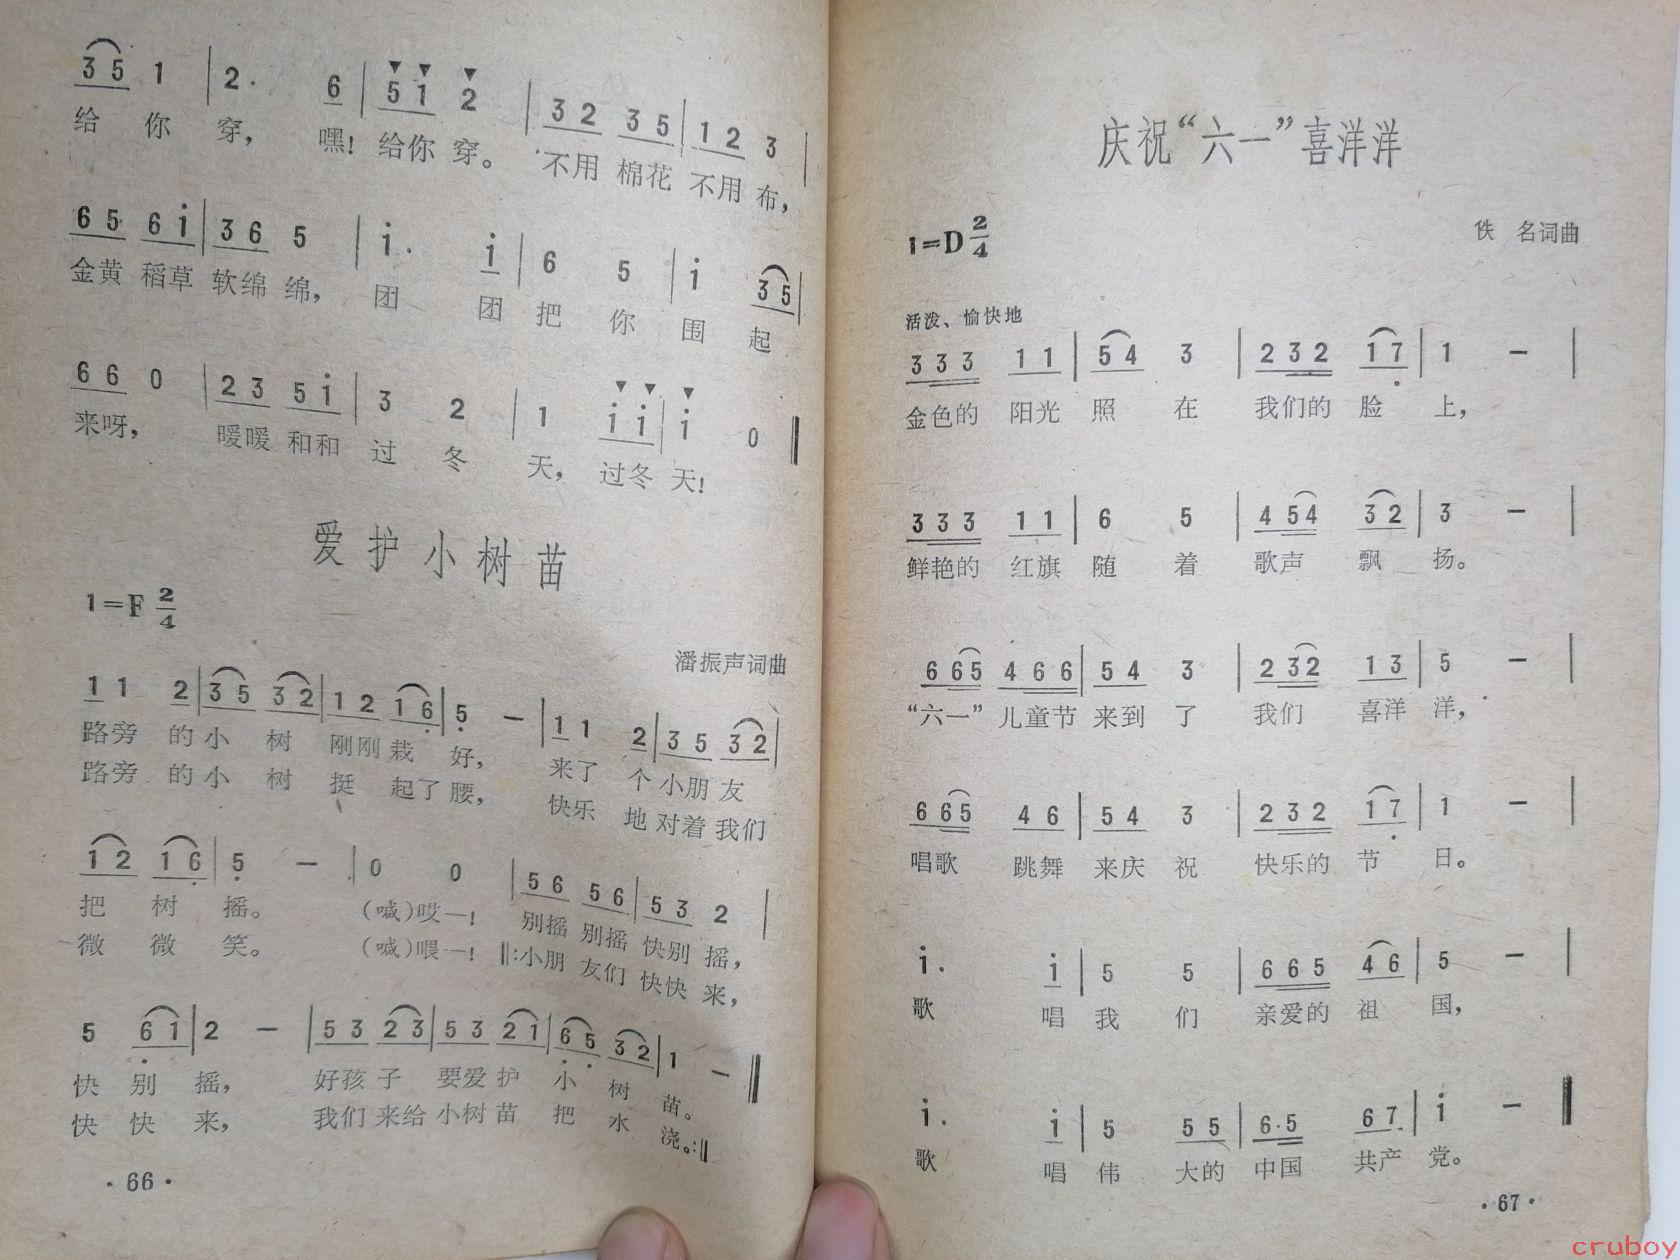 3 5 1 | 2 · 6 | 5 1 2 | 3 2 3 5 | 1 2 3 |
给 你 穿， 嘿！ 给你 穿。 不用 棉花 不用 布，
6 5 6 i | 3 6 5 | i · i | 6 5 | i 3 5 |
金黄 稻草 软绵 绵， 团 团 把 你 围 起
6 6 0 | 2 3 5 i | 3 2 | 1 i i | i 0 ‖
来呀， 暖暖 和和 过 冬 天， 过冬 天！
爱护小树苗
1=F 2/4
潘振声词曲
1 1 2 | 3 5 3 2 | 1 2 1 6 | 5 — | 1 1 2 | 3 5 3 2 |
路旁 的 小 树 刚刚 栽 好， 来了 个 小朋 友
路旁 的 小 树 挺 起了 腰， 快乐 地 对着 我们
1 2 1 6 | 5 — | 0 0 | 5 6 5 6 | 5 3 2 |
把 树 摇。 （喊）哎—！ 别摇 别摇 快别 摇，
微 微 笑。 （喊）喂—！ ‖:小朋 友们 快快 来，
5 6 1 | 2 — | 5 3 2 3 | 5 3 2 1 | 6 5 3 2 | 1 — ‖
快 别 摇， 好孩 子 要爱 护 小 树 苗。
快 快 来， 我们 来给 小树 苗 把 水 浇。:‖
·66·
庆祝“六一”喜洋洋
1=D 2/4
佚 名词曲
活泼、愉快地
3 3 3 1 1 | 5 4 3 | 2 3 2 1 7 | 1 — |
金色的 阳光 照 在 我们的 脸 上，
3 3 3 1 1 | 6 5 | 4 5 4 3 2 | 3 — |
鲜艳的 红旗 随 着 歌声 飘 扬。
6 6 5 4 6 6 | 5 4 3 | 2 3 2 1 3 | 5 — |
“六一” 儿童节 来到 了 我们 喜洋 洋，
6 6 5 4 6 | 5 4 3 | 2 3 2 1 7 | 1 — |
唱歌 跳舞 来庆 祝 快乐的 节 日。
i · i | 5 5 | 6 6 5 4 6 | 5 — |
歌 唱 我 们 亲爱的 祖 国，
i · i | 5 5 5 | 6 · 5 6 7 | i — ‖
歌 唱 伟 大的 中国 共产 党。
·67·
cruboy